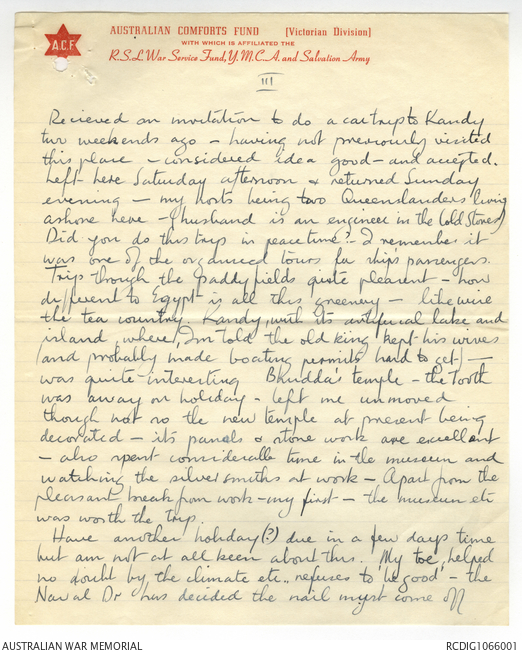 A.C.F
AUSTRALIAN COMFORTS FUND [Victorian Division]
WITH WHICH IS AFFILIATED THE
R.S.L War Service Fund, Y.M.C.A. and Salvation Army
III
Recieved an invitation to do a car trip to Kandy
two weekends ago - having not previously visited
this place - considered idea good - and accepted.
Left here Saturday afternoon & returned Sunday
evening - my hosts being two Queenslanders living
ashore here - (husband is an engineer in the Cold Stores)
Did you do this trip in peace time? - I remember it
was one of the organised tours for ship's passengers.
Trip though the paddyfields quite pleasent - how
different to Egypt is all this greenery - likewise
the tea country. Kandy, with its artificial lake and
island, where, I'm told the old king kept his wives
(and probably made boating permits hard to get) -
was quite interesting Bhudda's temple - the Tooth
was away on holiday - left me unmoved
though not so the new temple at present being
decorated - its panels & stone work are excellent
- also spent considerable time in the museum and
watching the silversmiths at work - Apart from the
pleasant break from work - my first - the museum etc
was worth the trip.
Have another holiday (?) due in a few days time
but am not at all keen about this. My toe, helped
no doubt by the climate etc., refuses to 'be good' - the
Naval Dr has decided the nail myst come off
AUSTRALIAN WAR MEMORIAL
RCDIG1066001